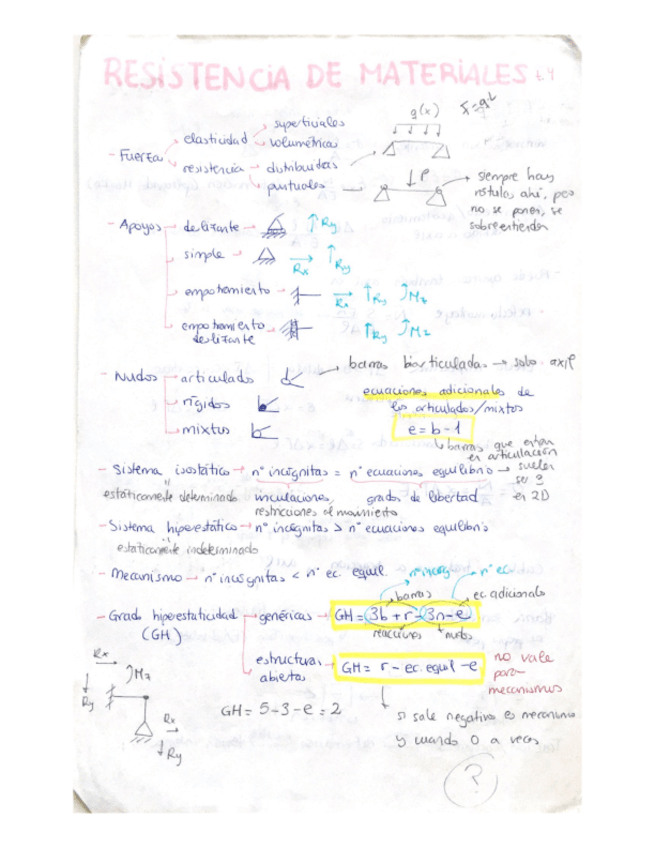 RESISTENCIA DE MATERIALES t.4
q(x)
superficiales
elasticidad volumétricas
- Fuerzas
resistencia distribuidas
puntuales
P
siempre hay
rótulas ahí, pero
no se ponen, se
sobreentienden
- Apoyos deslizante Ry
simple Rx Ry
empotramiento Rx Ry Mz
empotramiento
deslizante Ry Mz
- Nudos articulados barras biarticuladas → solo axil
rígidos
mixtos
ecuaciones adicionales de
los articulados/mixtos
e = b - 1
barras que están
en articulación
- Sistema isostático → nº incógnitas = nº ecuaciones equilibrio → suelen
ser 3
en 2D
estáticamente determinado vinculaciones, grados de libertad
restricciones al movimiento
- Sistema hiperestático → nº incógnitas > nº ecuaciones equilibrio
estáticamente indeterminado
- Mecanismo → nº incógnitas < nº ec. equil.
nº incog nº ec.
barras ec. adicionales
- Grado hiperestaticidad genéricas → GH = 3b + r - 3n - e
(GH)
reacciones nudos
estructuras
abiertas GH = r - ec. equil - e
no vale
para
mecanismos
Rx
Mz
Ry
Rx
Ry
GH = 5 - 3 - e = 2
si sale negativo es mecanismo
y cuando 0 a veces
?